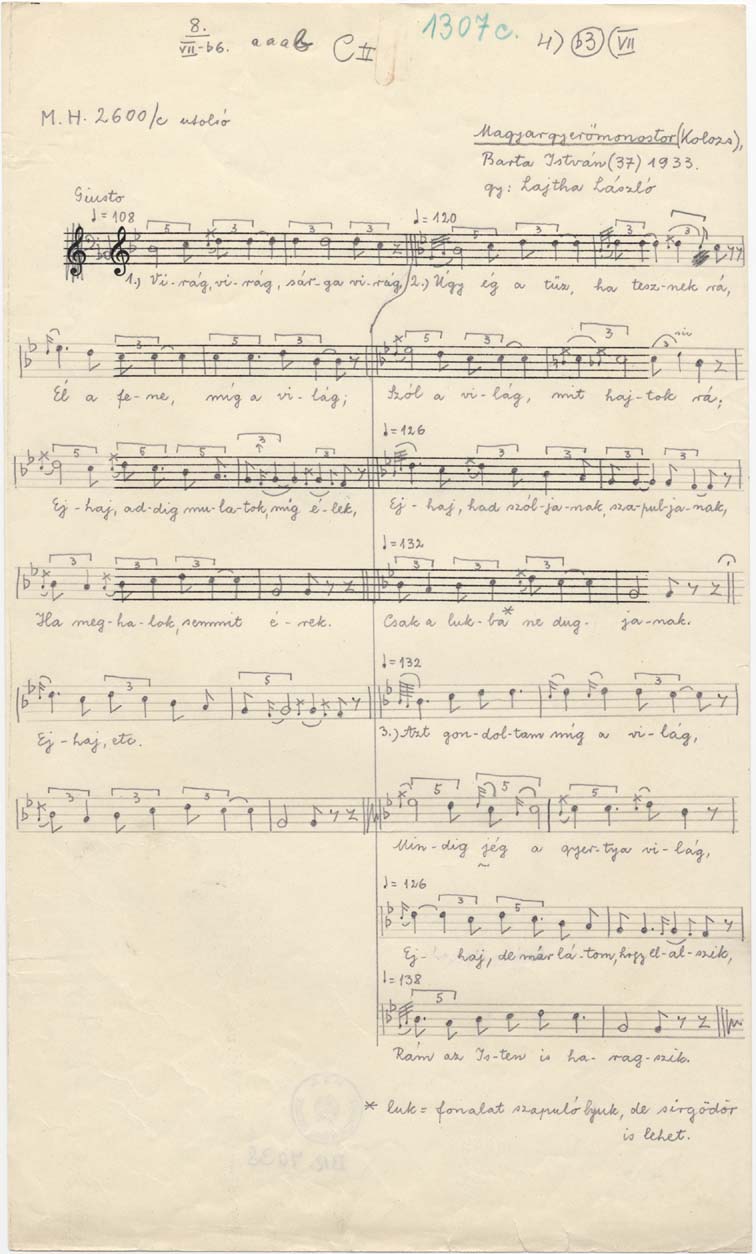 8. VII-b6. a a a b C II 1307c. 4) b3 (VII
M. H. 2600/c utolsó
Magyargyerőmonostor (Kolozs),
Barta István (37) 1933.
gy: Lajtha László
Giusto
♩= 108 ♩= 120
1.) Vi-rág, vi-rág, sár-ga vi-rág, 2.) Úgy ég a tűz, ha tesz-nek rá,
sic
Él a fe-ne, míg a vi-lág; Szól a vi-lág, mit haj-tok rá;
♩= 126
Ej-haj, ad-dig mu-la-tok, míg é-lek, Ej-haj, had szól-ja-nak, sza-pul-ja-nak,
♩= 132
Ha meg-ha-lok, semmit é-rek. Csak a luk-ba* ne dug-ja-nak.
♩= 132
Ej-haj, etc. 3.) Azt gon-dol-tam míg a vi-lág,
Min-dig jég a gyer-tya vi-lág,
♩= 126
Ej-haj, de már lá-tom, hogy el-al-szik,
♩= 138
Rám az Is-ten is ha-rag-szik.
* luk = fonalat szapuló lyuk, de sirgödör
is lehet.